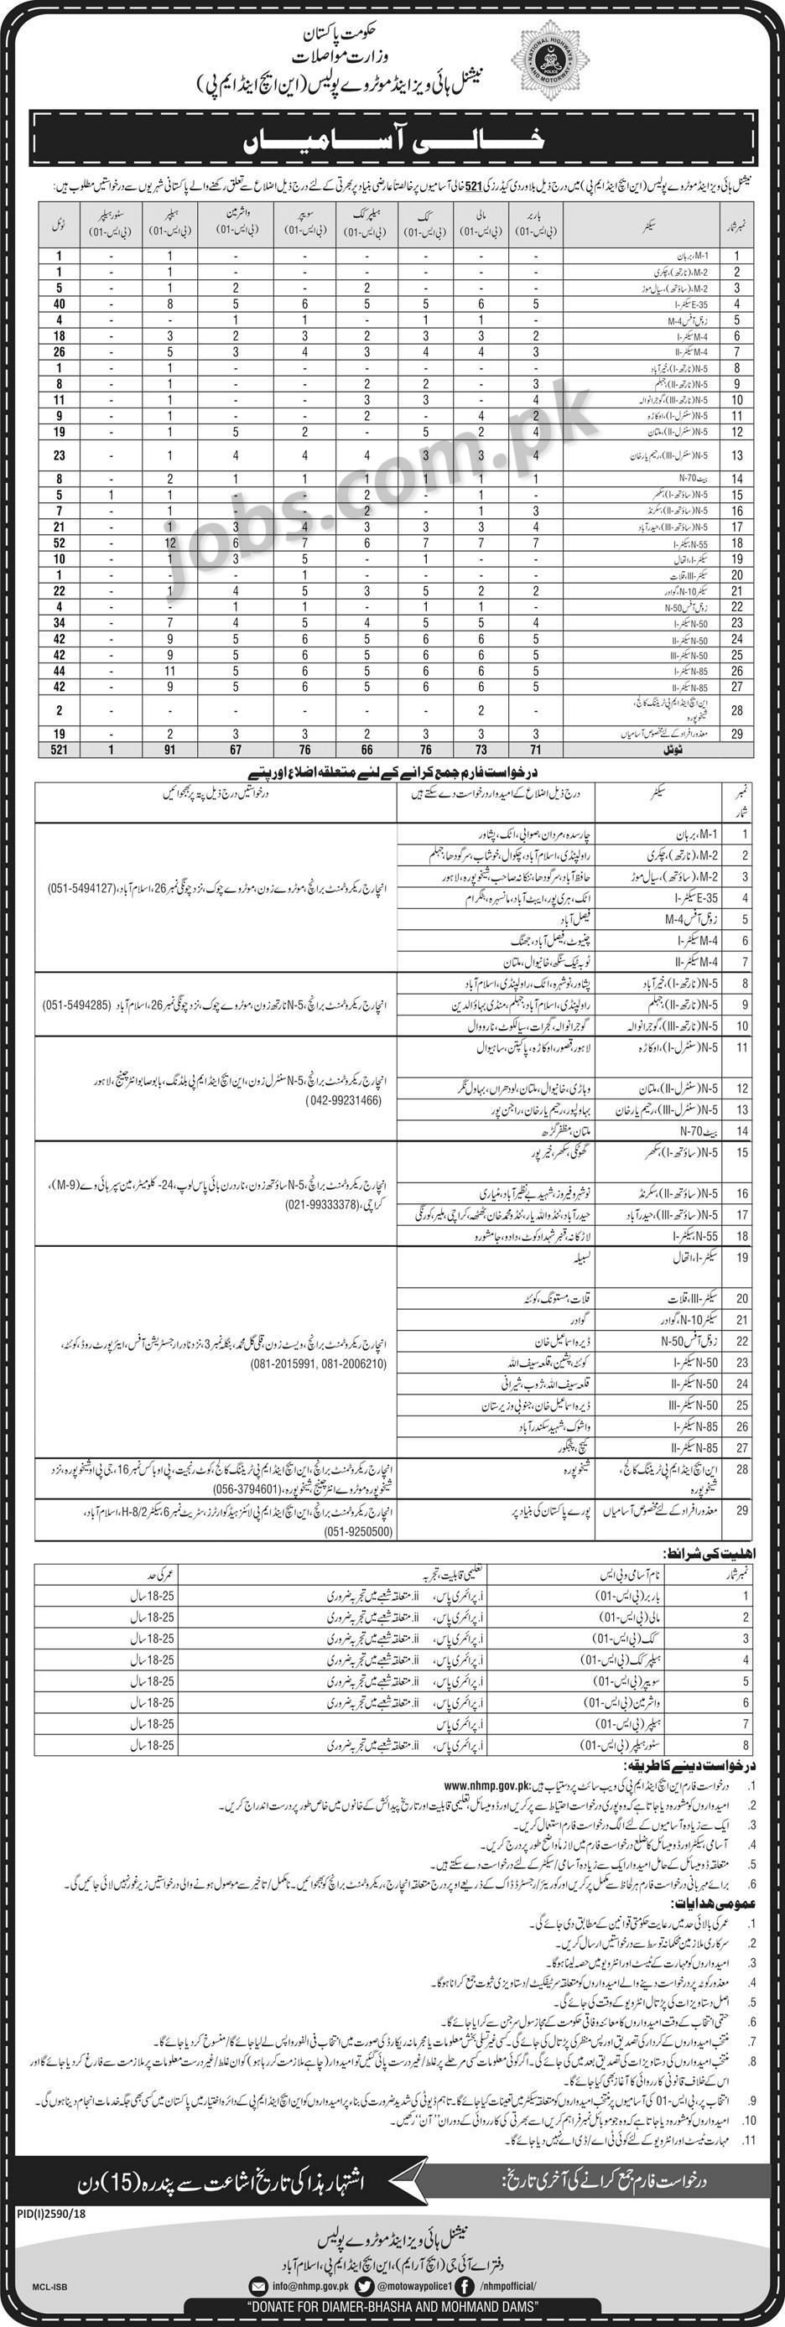 حکومت پاکستان
وزارت مواصلات
نیشنل ہائی ویز اینڈ موٹروے پولیس (این ایچ اینڈ ایم پی)
خالی آسامیاں
نیشنل ہائی ویز اینڈ موٹروے پولیس (این ایچ اینڈ ایم پی) میں درج ذیل بلا وردی کیڈرز کی 521 خالی آسامیوں پر خالصتاً عارضی بنیاد پر بھرتی کے لئے درج ذیل اضلاع سے تعلق رکھنے والے پاکستانی شہریوں سے درخواستیں مطلوب ہیں:
نمبر شمار سیکٹر باربر (بی ایس-01) مالی (بی ایس-01) کک (بی ایس-01) ہیلپر کک (بی ایس-01) سویپر (بی ایس-01) واشرمین (بی ایس-01) ہیلپر (بی ایس-01) سٹور ہیلپر (بی ایس-01) ٹوٹل
1 M-1، برہان - - - - - - 1 - 1
2 M-2، (نارتھ)، چکری - - - - - - 1 - 1
3 M-2، (ساؤتھ)، سیال موڑ - - - 2 - 2 1 - 5
4 E-35 سیکٹر-I 5 6 5 5 6 5 8 - 40
5 زونل آفس M-4 - 1 1 - 1 1 - - 4
6 M-4 سیکٹر-I 2 3 3 2 3 2 3 - 18
7 M-4 سیکٹر-II 3 4 4 3 4 3 5 - 26
8 N-5 (نارتھ-I)، خیرآباد - - - - - - 1 - 1
9 N-5 (نارتھ-II)، جہلم 3 - 2 2 - - 1 - 8
10 N-5 (نارتھ-III)، گوجرانوالہ 4 - 3 3 - - 1 - 11
11 N-5 (سنٹرل-I)، اوکاڑہ 2 4 - 2 - - 1 - 9
12 N-5 (سنٹرل-II)، ملتان 4 2 5 - 2 5 1 - 19
13 N-5 (سنٹرل-III)، رحیم یار خان 4 3 3 4 4 4 1 - 23
14 بیٹ N-70 1 1 1 1 1 1 2 - 8
15 N-5 (ساؤتھ-I)، سکھر - 1 - 2 - - 1 1 5
16 N-5 (ساؤتھ-II)، سکرنڈ 3 1 - 2 - - 1 - 7
17 N-5 (ساؤتھ-III)، حیدرآباد 4 3 3 3 4 3 1 - 21
18 N-55 سیکٹر-I 7 7 7 6 7 6 12 - 52
19 سیکٹر-I، اتھال - - 1 - 5 3 1 - 10
20 سیکٹر-III، قلات - - - - 1 - - - 1
21 سیکٹر N-10، گوادر 2 2 5 3 5 4 1 - 22
22 زونل آفس N-50 - 1 1 - 1 1 - - 4
23 N-50 سیکٹر-I 4 5 5 4 5 4 7 - 34
24 N-50 سیکٹر-II 5 6 6 5 6 5 9 - 42
25 N-50 سیکٹر-III 5 6 6 5 6 5 9 - 42
26 N-85 سیکٹر-I 5 6 6 5 6 5 11 - 44
27 N-85 سیکٹر-II 5 6 6 5 6 5 9 - 42
28 این ایچ اینڈ ایم پی ٹریننگ کالج، شیخوپورہ - 2 - - - - - - 2
29 معذور افراد کے لئے مخصوص آسامیاں 3 3 3 2 3 3 2 - 19
ٹوٹل 71 73 76 66 76 67 91 1 521
jobs.com.pk
درخواست فارم جمع کرانے کے لئے متعلقہ اضلاع اور پتے
نمبر شمار سیکٹر درج ذیل اضلاع کے امیدوار درخواست دے سکتے ہیں درخواستیں درج ذیل پتہ پر بھجوائیں
1 M-1، برہان چارسدہ، مردان، صوابی، اٹک، پشاور
2 M-2، (نارتھ)، چکری راولپنڈی، اسلام آباد، چکوال، خوشاب، سرگودھا، جہلم
3 M-2، (ساؤتھ)، سیال موڑ حافظ آباد، سرگودھا، ننکانہ صاحب، شیخوپورہ، لاہور
انچارج ریکروٹمنٹ برانچ، موٹروے زون، موٹروے چوک، نزد چونگی نمبر 26، اسلام آباد، (051-5494127)
4 E-35 سیکٹر-I اٹک، ہری پور، ایبٹ آباد، مانسہرہ، بٹگرام
5 زونل آفس M-4 فیصل آباد
6 M-4 سیکٹر-I چنیوٹ، فیصل آباد، جھنگ
7 M-4 سیکٹر-II ٹوبہ ٹیک سنگھ، خانیوال، ملتان
8 N-5 (نارتھ-I)، خیرآباد پشاور، نوشہرہ، اٹک، راولپنڈی، اسلام آباد
9 N-5 (نارتھ-II)، جہلم راولپنڈی، اسلام آباد، جہلم، منڈی بہاؤالدین
انچارج ریکروٹمنٹ برانچ، N-5 نارتھ زون، موٹروے چوک، نزد چونگی نمبر 26، اسلام آباد (051-5494285)
10 N-5 (نارتھ-III)، گوجرانوالہ گوجرانوالہ، گجرات، سیالکوٹ، نارووال
11 N-5 (سنٹرل-I)، اوکاڑہ لاہور، قصور، اوکاڑہ، پاکپتن، ساہیوال
12 N-5 (سنٹرل-II)، ملتان وہاڑی، خانیوال، ملتان، لودھراں، بہاولنگر
انچارج ریکروٹمنٹ برانچ، N-5 سنٹرل زون، این ایچ اینڈ ایم پی بلڈنگ، بابو صابو انٹرچینج، لاہور
(042-99231466)
13 N-5 (سنٹرل-III)، رحیم یار خان بہاولپور، رحیم یار خان، راجن پور
14 بیٹ N-70 ملتان، مظفرگڑھ
15 N-5 (ساؤتھ-I)، سکھر گھوٹکی، سکھر، خیرپور
16 N-5 (ساؤتھ-II)، سکرنڈ نوشہرو فیروز، شہید بے نظیر آباد، مٹیاری
انچارج ریکروٹمنٹ برانچ، N-5 ساؤتھ زون، ناردرن بائی پاس لوپ، 24- کلومیٹر، مین سپر ہائی وے (M-9)،
کراچی، (021-99333378)
17 N-5 (ساؤتھ-III)، حیدرآباد حیدرآباد، ٹنڈو اللہ یار، ٹنڈو محمد خان، ٹھٹھہ، کراچی، ملیر، کورنگی
18 N-55، سیکٹر-I لاڑکانہ، قمبر شہدادکوٹ، دادو، جامشورو
19 سیکٹر-I، اتھال لسبیلہ
20 سیکٹر-III، قلات قلات، مستونگ، کوئٹہ
21 سیکٹر N-10، گوادر گوادر
22 زونل آفس N-50 ڈیرہ اسماعیل خان
انچارج ریکروٹمنٹ برانچ، ویسٹ زون، کلی گل محمد، بنگلہ نمبر 3، نزد نادرا رجسٹریشن آفس، ایئرپورٹ روڈ، کوئٹہ،
(081-2015991, 081-2006210)
23 N-50 سیکٹر-I کوئٹہ، پشین، قلعہ سیف اللہ
24 N-50 سیکٹر-II قلعہ سیف اللہ، ژوب، شیرانی
25 N-50 سیکٹر-III ڈیرہ اسماعیل خان، جنوبی وزیرستان
26 N-85 سیکٹر-I واشوک، شہید سکندر آباد
27 N-85 سیکٹر-II کیچ، پنجگور
28 این ایچ اینڈ ایم پی ٹریننگ کالج، شیخوپورہ شیخوپورہ
انچارج ریکروٹمنٹ برانچ، این ایچ اینڈ ایم پی ٹریننگ کالج، کوٹ رنجیت، پی او باکس نمبر 16، جی پی او شیخوپورہ، نزد
شیخوپورہ موٹروے انٹرچینج، شیخوپورہ، (056-3794601)
29 معذور افراد کے لئے مخصوص آسامیاں پورے پاکستان کی بنیاد پر
انچارج ریکروٹمنٹ برانچ، این ایچ اینڈ ایم پی لائنز ہیڈ کوارٹرز، سٹریٹ نمبر 6، سیکٹر H-8/2، اسلام آباد،
(051-9250500)
اہلیت کی شرائط:
نمبر شمار نام آسامی و بی ایس تعلیمی قابلیت، تجربہ عمر کی حد
1 باربر (بی ایس-01) i. پرائمری پاس، ii. متعلقہ شعبے میں تجربہ ضروری 18-25 سال
2 مالی (بی ایس-01) i. پرائمری پاس، ii. متعلقہ شعبے میں تجربہ ضروری 18-25 سال
3 کک (بی ایس-01) i. پرائمری پاس، ii. متعلقہ شعبے میں تجربہ ضروری 18-25 سال
4 ہیلپر کک (بی ایس-01) i. پرائمری پاس، ii. متعلقہ شعبے میں تجربہ ضروری 18-25 سال
5 سویپر (بی ایس-01) i. پرائمری پاس، ii. متعلقہ شعبے میں تجربہ ضروری 18-25 سال
6 واشرمین (بی ایس-01) i. پرائمری پاس، ii. متعلقہ شعبے میں تجربہ ضروری 18-25 سال
7 ہیلپر (بی ایس-01) i. پرائمری پاس 18-25 سال
8 سٹور ہیلپر (بی ایس-01) i. پرائمری پاس، ii. متعلقہ شعبے میں تجربہ ضروری 18-25 سال
درخواست دینے کا طریقہ:
1. درخواست فارم این ایچ اینڈ ایم پی کی ویب سائٹ پر دستیاب ہیں: www.nhmp.gov.pk
2. امیدواروں کو مشورہ دیا جاتا ہے کہ وہ پوری درخواست احتیاط سے پر کریں اور ڈومیسائل، تعلیمی قابلیت اور تاریخ پیدائش کے خانوں میں خاص طور پر درست اندراج کریں۔
3. ایک سے زیادہ آسامیوں کے لئے الگ درخواست فارم استعمال کریں۔
4. آسامی، سیکٹر اور ڈومیسائل کا ضلع درخواست فارم میں لازماً واضح طور پر درج کریں۔
5. متعلقہ ڈومیسائل کے حامل امیدوار ایک سے زیادہ آسامی/سیکٹر کے لئے درخواست دے سکتے ہیں۔
6. برائے مہربانی درخواست فارم ہر لحاظ سے مکمل پر کریں اور کوریئر/رجسٹرڈ ڈاک کے ذریعے اوپر درج متعلقہ انچارج، ریکروٹمنٹ برانچ کو بھجوائیں۔ نامکمل/تاخیر سے موصول ہونے والی درخواستیں زیر غور نہیں لائی جائیں گی۔
عمومی ہدایات:
1. عمر کی بالائی حد میں رعایت حکومتی قوانین کے مطابق دی جائے گی۔
2. سرکاری ملازمین محکمانہ توسط سے درخواستیں ارسال کریں۔
3. امیدواروں کو مہارت کے ٹیسٹ اور انٹرویو میں حصہ لینا ہو گا۔
4. معذور کوٹہ پر درخواست دینے والے امیدواروں کو متعلقہ سرٹیفکیٹ/دستاویزی ثبوت جمع کرانا ہو گا۔
5. اصل دستاویزات کی پڑتال انٹرویو کے وقت کی جائے گی۔
6. حتمی انتخاب کے وقت امیدواروں کا معائنہ وفاقی حکومت کے مجاز سول سرجن سے کرایا جائے گا۔
7. منتخب امیدواروں کے کردار کی تصدیق اور پس منظر کی پڑتال کی جائے گی۔ کسی غیر تسلی بخش معلومات یا مجرمانہ ریکارڈ کی صورت میں انتخاب فی الفور واپس لے لیا جائے گا/منسوخ کر دیا جائے گا۔
8. منتخب امیدواروں کی دستاویزات کی تصدیق بعد میں کی جائے گی۔ اگر کوئی معلومات کسی مرحلے پر غلط/غیر درست پائی گئیں تو امیدوار (چاہے ملازمت کر رہا ہو) کو ان غلط/غیر درست معلومات پر ملازمت سے فارغ کر دیا جائے گا اور
اس کے خلاف قانونی کارروائی کا آغاز بھی کیا جائے گا۔
9. انتخاب پر، بی ایس-01 کی آسامیوں پر منتخب امیدواروں کو متعلقہ سیکٹر میں تعینات کیا جائے گا۔ تاہم ڈیوٹی کی شدید ضرورت کی بناء پر امیدواروں کو این ایچ اینڈ ایم پی کے دائرہ اختیار میں پاکستان میں کسی بھی جگہ خدمات انجام دینا ہوں گی۔
10. امیدواروں کو مشورہ دیا جاتا ہے کہ وہ جو موبائل نمبر فراہم کریں اسے بھرتی کی کارروائی کے دوران "آن" رکھیں۔
11. مہارت ٹیسٹ اور انٹرویو کے لئے کوئی ٹی اے/ڈی اے نہیں دیا جائے گا۔
درخواست فارم جمع کرانے کی آخری تاریخ: اشتہار ہذا کی تاریخ اشاعت سے پندرہ (15) دن
PID(I)2590/18
نیشنل ہائی ویز اینڈ موٹروے پولیس
دفتر اے آئی جی (ایچ آر ایم)، این ایچ اینڈ ایم پی، اسلام آباد
MCL-ISB
info@nhmp.gov.pk @motowaypolice1 /nhmpofficial/
"DONATE FOR DIAMER-BHASHA AND MOHMAND DAMS"